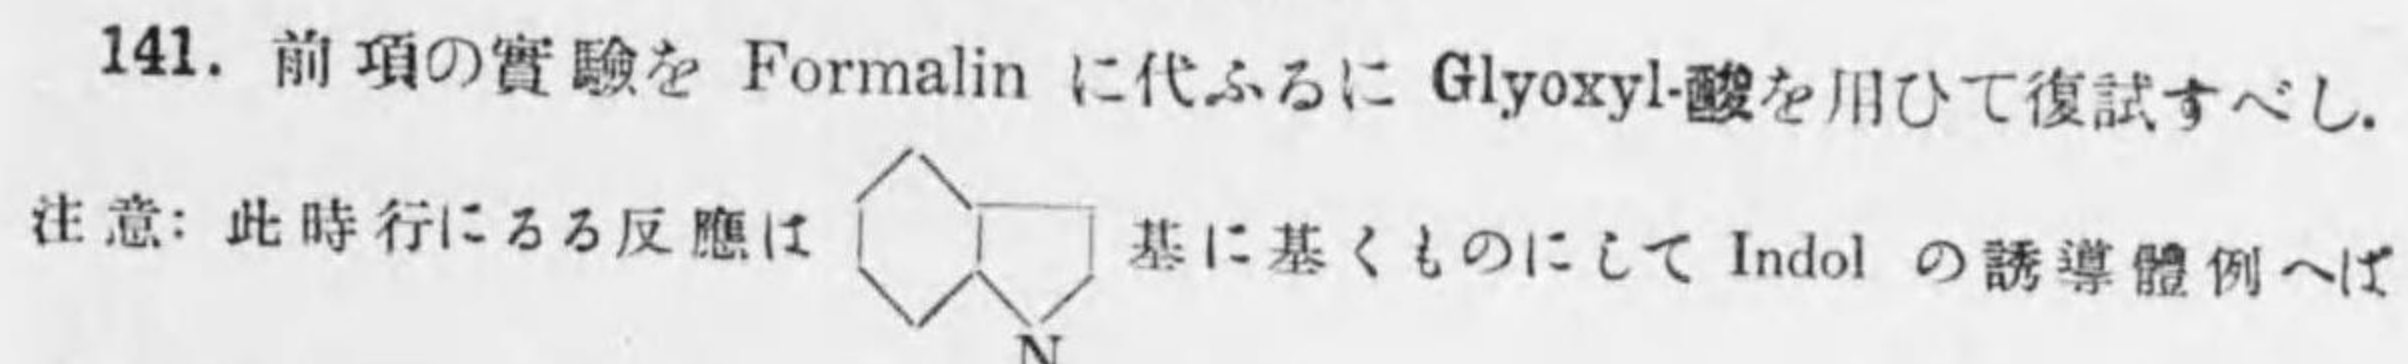 141. 前項の實驗を Formalin に代ふるに Glyoxyl-酸を用ひて復試すべし.
注意: 此時行にるる反應は 基に基くものにして Indol の誘導體例へば
N